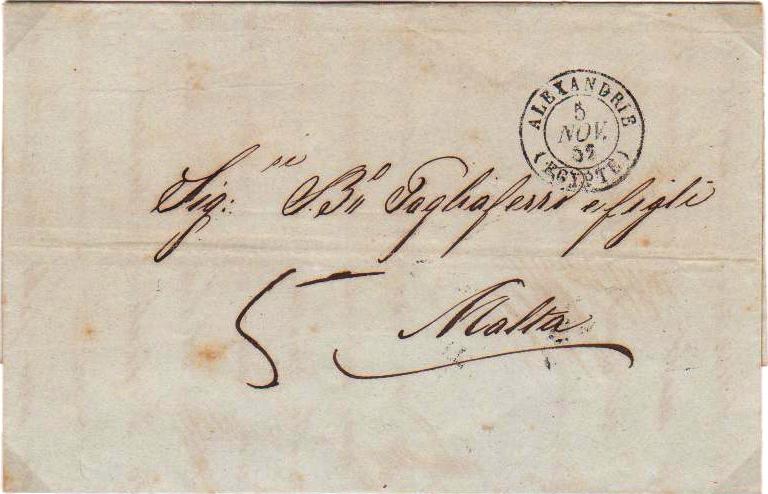 ALEXANDRIE
5
NOV.
(EGYPTE)
Sig:ri B.o Tagliaferro e figli
5
Malta